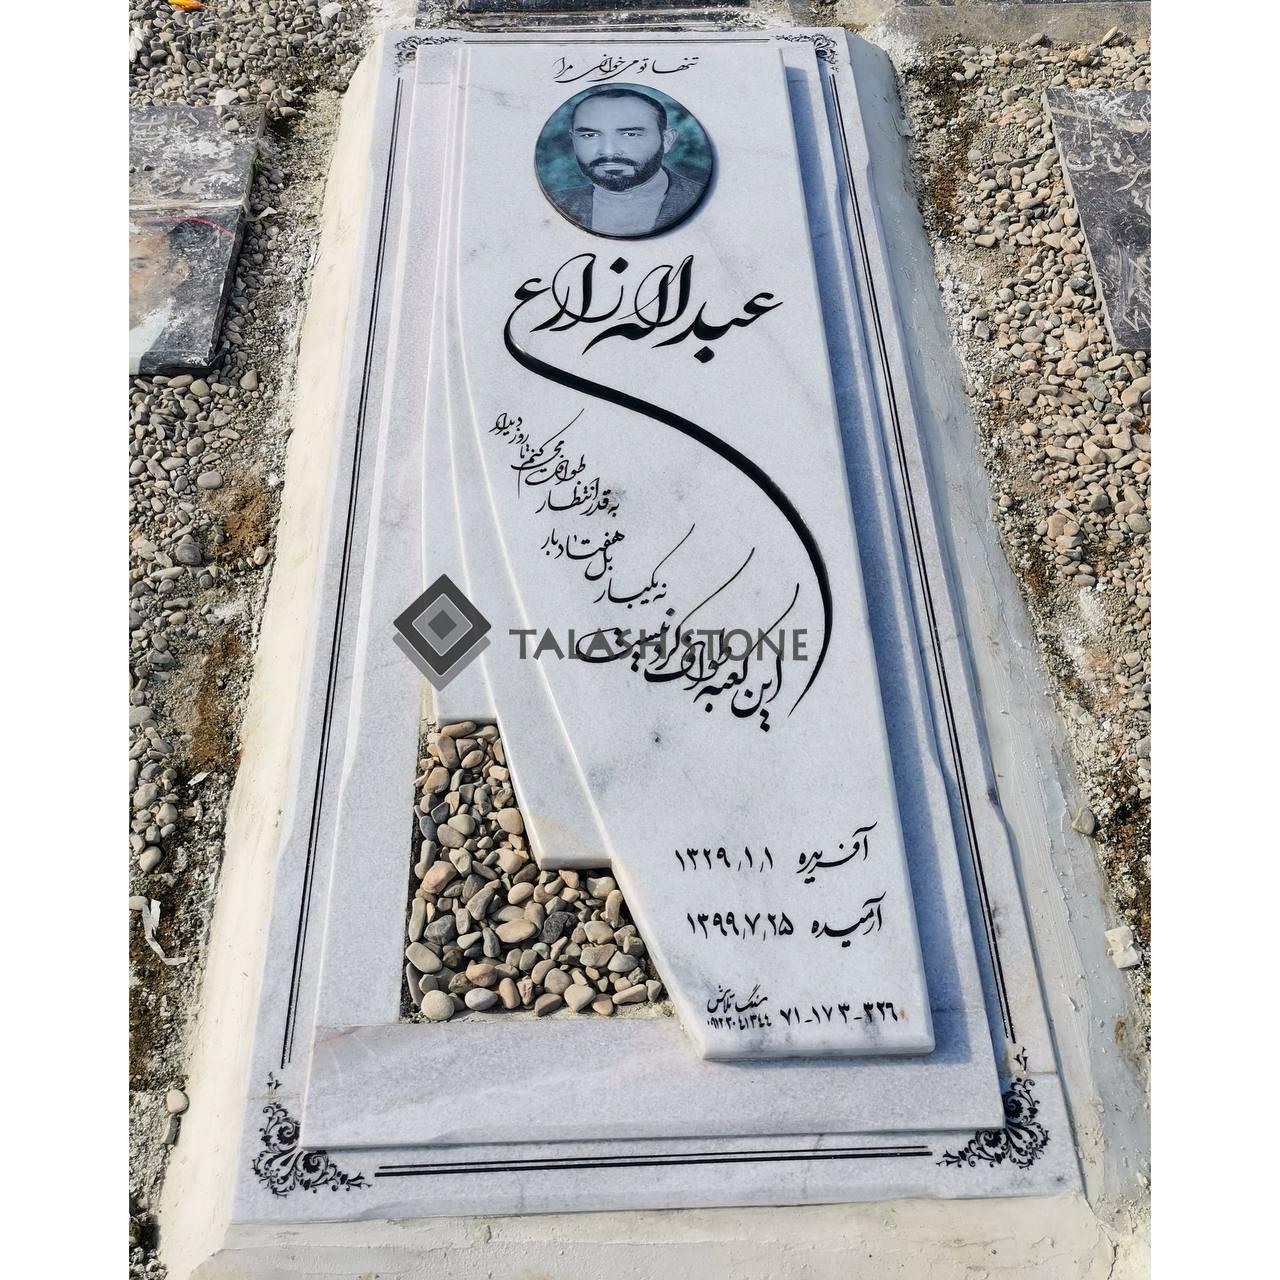 تنها تو می‌خوانی مرا
عبداله زارع
تا روز دیدار
طوافت می کنم
به قدر انتظار
بل هفتاد بار
نه یکبار
این کعبه طواف کردنیست
TALASH STONE
آفریده ۱۳۲۹٫۱٫۱
آرمیده ۱۳۹۹٫۷٫۲۵
۷۱-۱۷۳-۳۲۶
سنگ تلاش